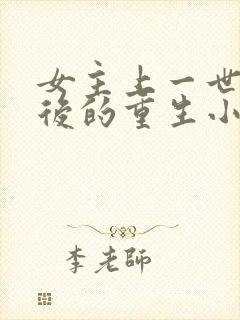 女主上一世
後的重生小
李老師